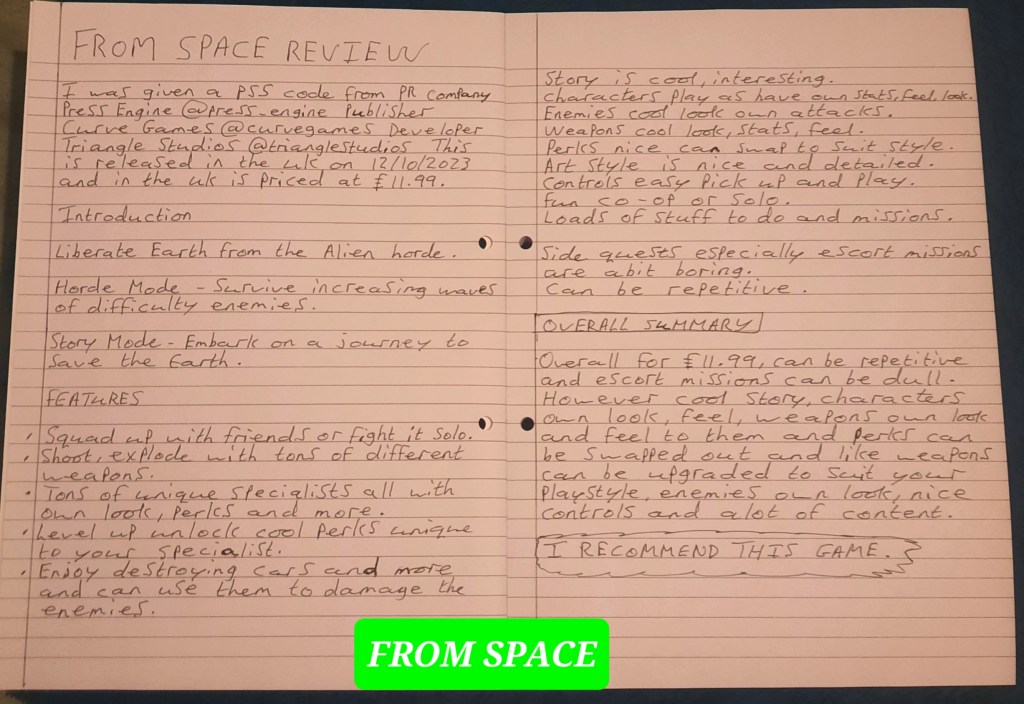 FROM SPACE REVIEW
I was given a PS5 code from PR Company
Press Engine @press_engine Publisher
Curve Games @curvegames Developer
Triangle Studios @trianglestudios This
is released in the uk on 12/10/2023
and in the uk is priced at £11.99.
Introduction
Liberate Earth from the Alien horde.
Horde Mode - Survive increasing waves
of difficulty enemies.
Story Mode - Embark on a journey to
Save the Earth.
FEATURES
• Squad up with friends or fight it solo.
• Shoot, explode with tons of different
weapons.
• Tons of unique specialists all with
own look, perks and more.
• Level up unlock cool perks unique
to your specialist.
• Enjoy destroying cars and more
and can use them to damage the
enemies.
Story is cool, interesting.
Characters play as have own stats, feel, look.
Enemies cool look own attacks.
Weapons cool look, stats, feel.
Perks nice can swap to suit style.
Art style is nice and detailed.
Controls easy pick up and play.
fun co-op or solo.
Loads of stuff to do and missions.
Side quests especially escort missions
are abit boring.
Can be repetitive.
OVERALL SUMMARY
Overall for £11.99, can be repetitive
and escort missions can be dull.
However cool story, characters
own look, feel, weapons own look
and feel to them and perks can
be swapped out and like weapons
can be upgraded to suit your
playstyle, enemies own look, nice
controls and alot of content.
I RECOMMEND THIS GAME.
FROM SPACE